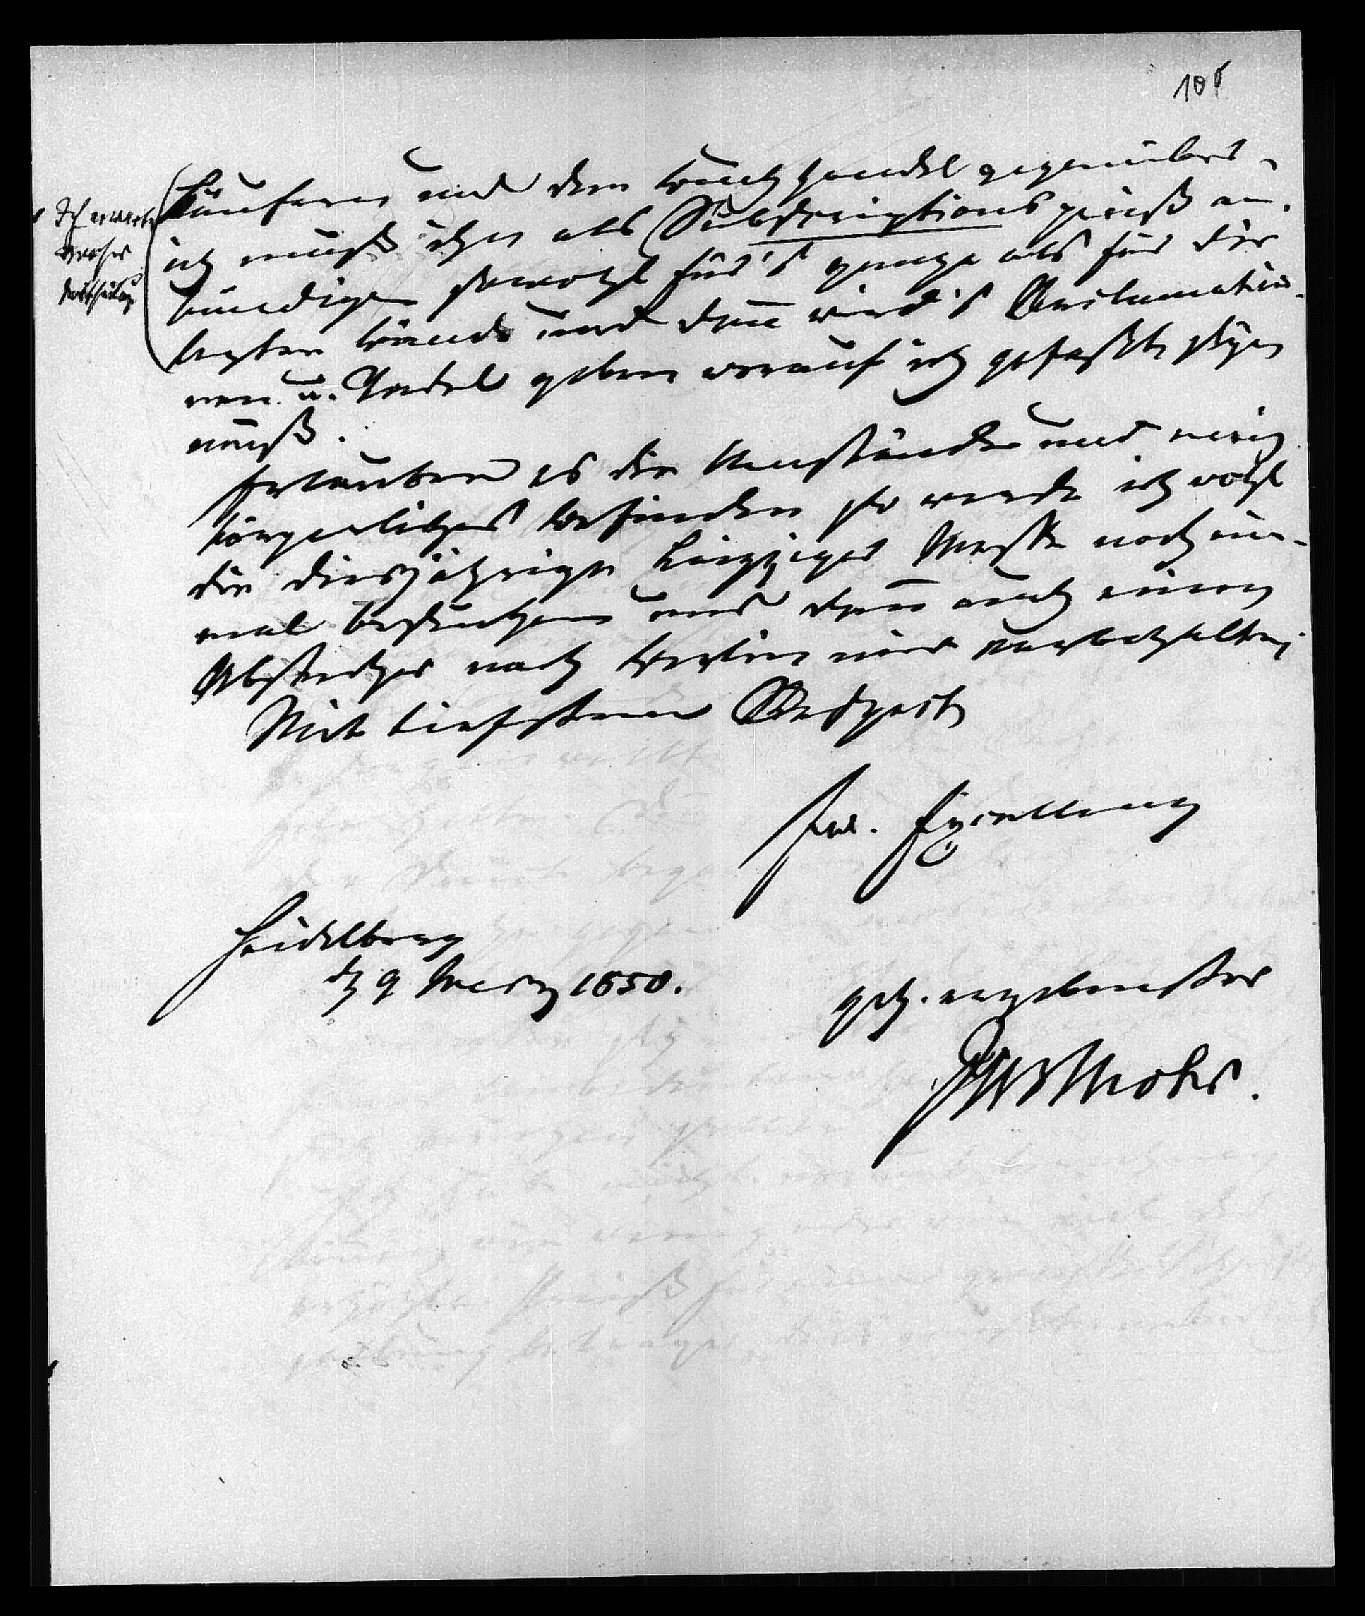 105
Käufern und dem Buchhandel gegenüber,
ich muß ihn als Subscriptionspreiß an-
kündigen sowohl für's ganze als für die
letzten Bände und dann wird's Reclamatio-
nen u. Tadel geben worauf ich gefaßt seyn
muß.
Erlauben es die Umstände und mein
körperliches Befinden so werde ich wohl
die diesjährige Leipziger Messe noch ein-
mal besuchen und dann auch einen
Abstecher nach Berlin mir vorbehalten,
Mit tiefstem Respect
Ew. Excellenz
Heidelberg
d 9 Merz 1850.
geh. ergebenster
JCBMohr.